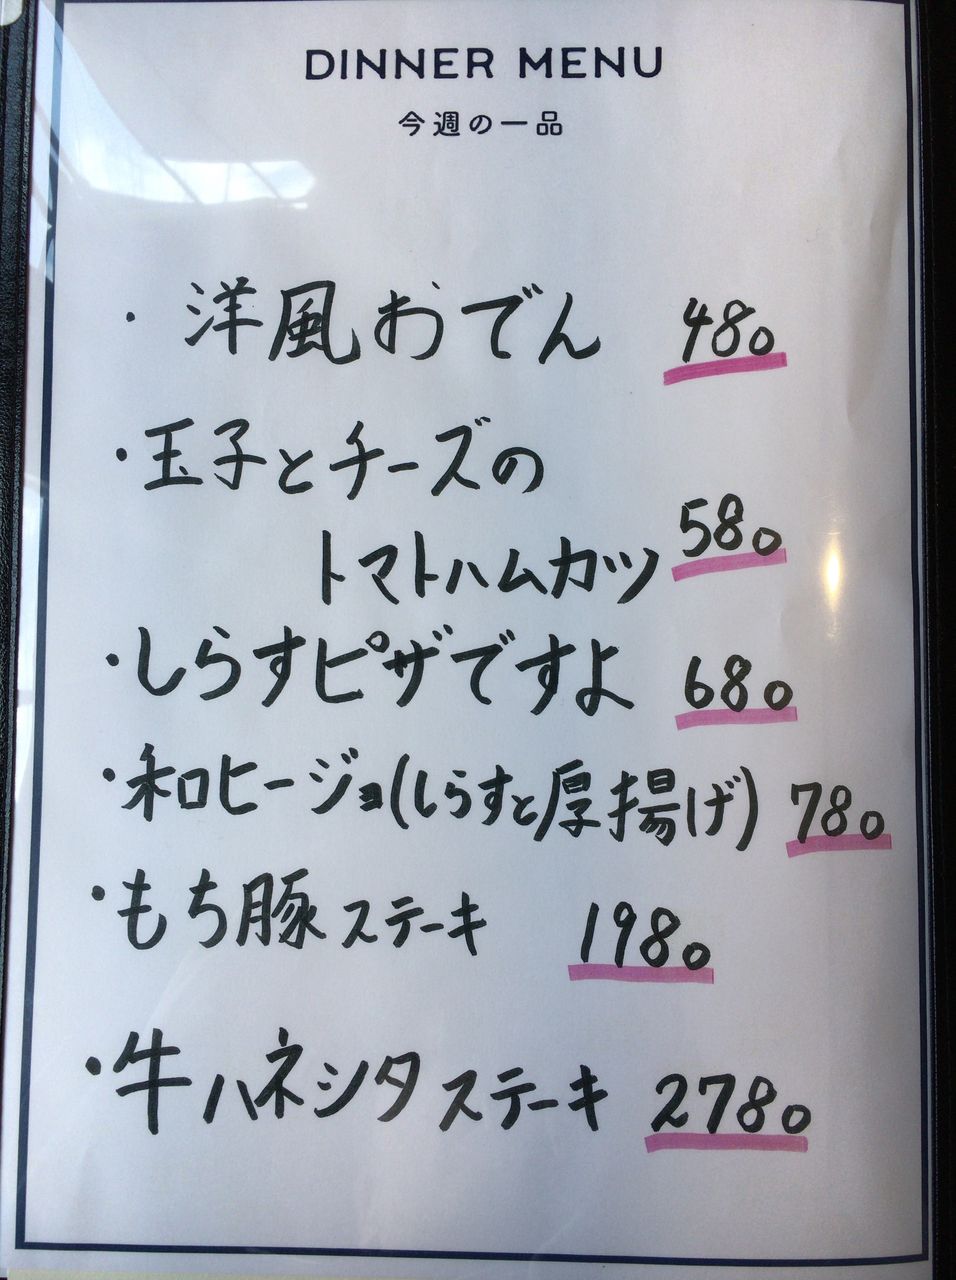 DINNER MENU
今週の一品
・洋風おでん 480
・玉子とチーズの
トマトハムカツ 580
・しらすピザですよ 680
・和ロヒージョ(しらすと厚揚げ) 780
・もち豚ステーキ 1980
・牛ハネシタステーキ 2780